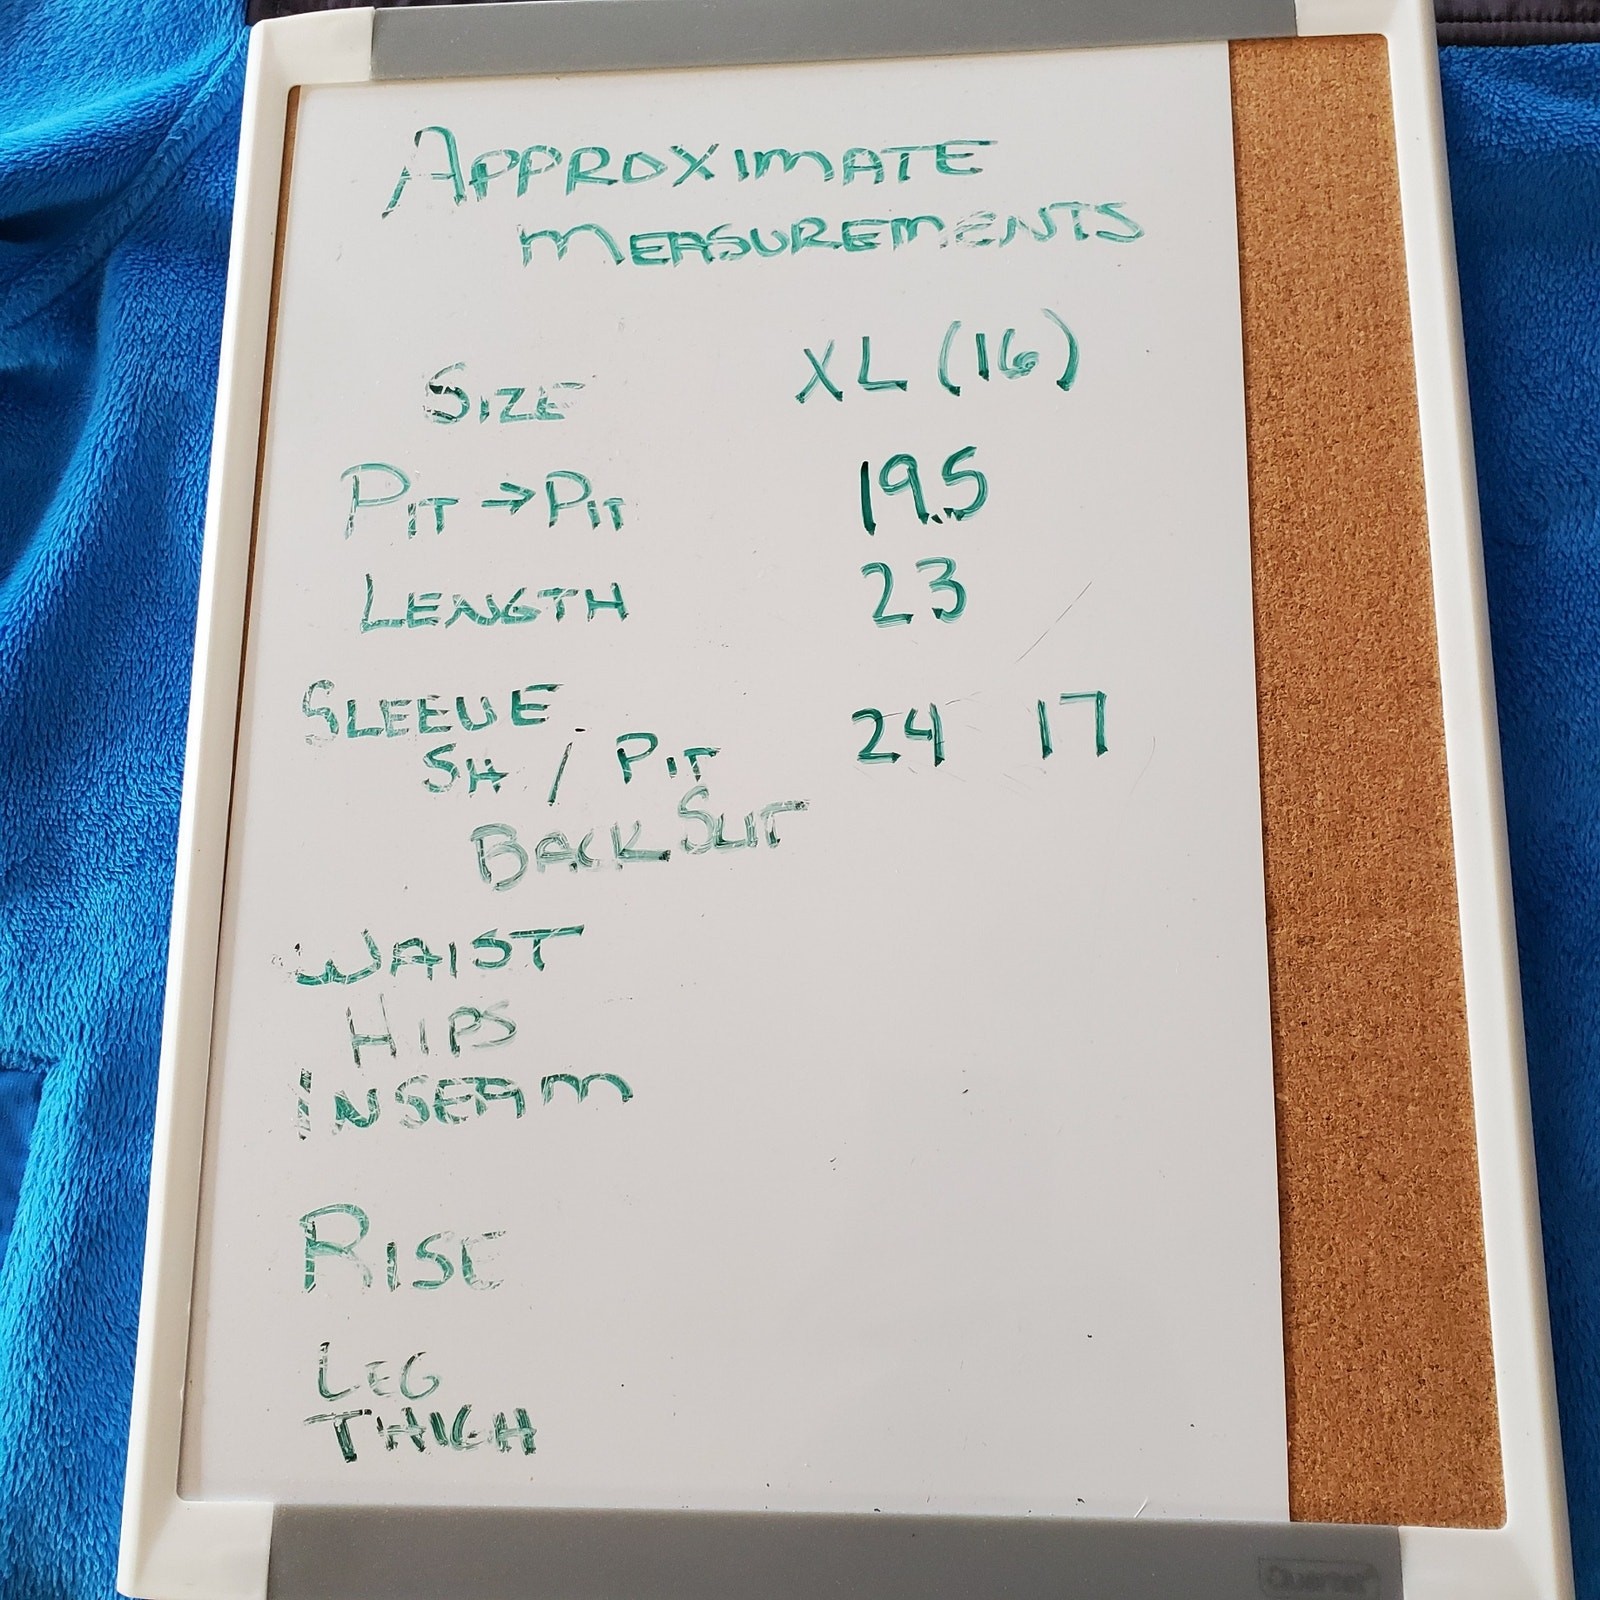 APPROXIMATE
MEASUREMENTS
SIZE XL (16)
PIT → PIT 19.5
LENGTH 23
SLEEVE
SH / PIT 24 17
BACK SLIT
WAIST
HIPS
INSEAM
RISE
LEG
THIGH
Quartet